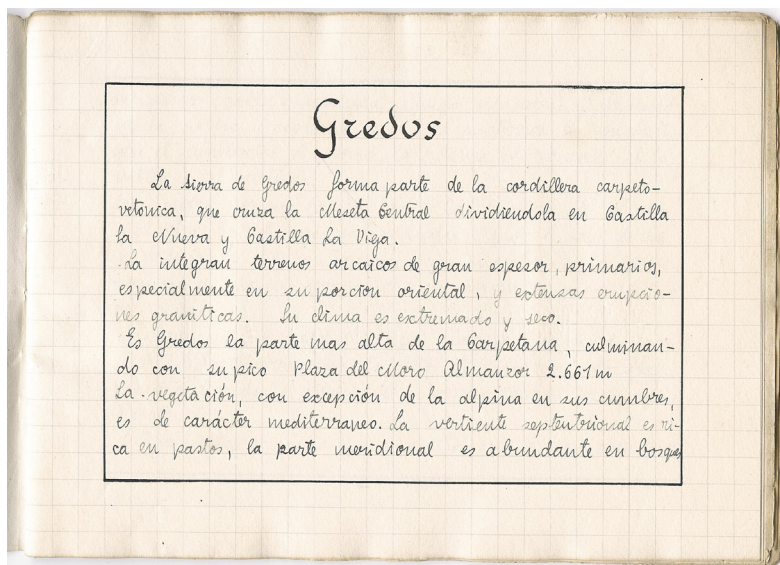 Gredos
La sierra de Gredos forma parte de la cordillera carpeto-
vetonica, que cruza la Meseta Central dividiendola en Castilla
la Nueva y Castilla La Vieja.
La integran terrenos arcaicos de gran espesor, primarios,
especialmente en su porcion oriental, y extensas erupcio-
nes graniticas. Su clima es extremado y seco.
Es Gredos la parte mas alta de la Carpetana, culminan-
do con su pico Plaza del Moro Almanzor 2.661 m
La vegetación, con excepción de la alpina en sus cumbres,
es de carácter mediterraneo. La vertiente septentrional es ri-
ca en pastos, la parte meridional es abundante en bosques